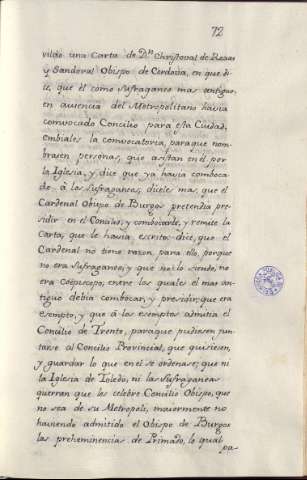 72
vildo una Carta de Dn Christoval de Roxas
y Sandoval Obispo de Cordova, en que di-
ce, que él como sufraganeo mas antiguo,
en ausencia del Metropolitano havia
convocado Concilio para esta Ciudad,
embiales la convocatoria, paraque nom-
brasen personas, que asistan en él por
la Iglesia, y dice que ya havia comboca-
do à las sufraganeas, diceles mas, que el
Cardenal Obispo de Burgos pretendia pre-
sidir en el Concilio, y combocarle, y remite la
Carta, que le havia escrito: dice, que el
Cardenal no tiene razon para ello, porque
no era sufraganeo, y que no lo siendo, no
era coepiscopo, entre los quales el mas an-
tiguo debia combocar, y presidir; que era
esempto, y que à los esemptos admitia el
Concilio de Trento, paraque pudiesen jun-
tarse al Concilio Provincial, que quisiesen,
y guardar lo que en el se ordenase; que ni
la Iglesia de Toledo, ni las sufraganeas
querran que les celebre Concilio Obispo, que
no sea de su Metropoli, maiormente no
haviendo admitido el Obispo de Burgos
las preheminencias de Primado, lo qual
pa-